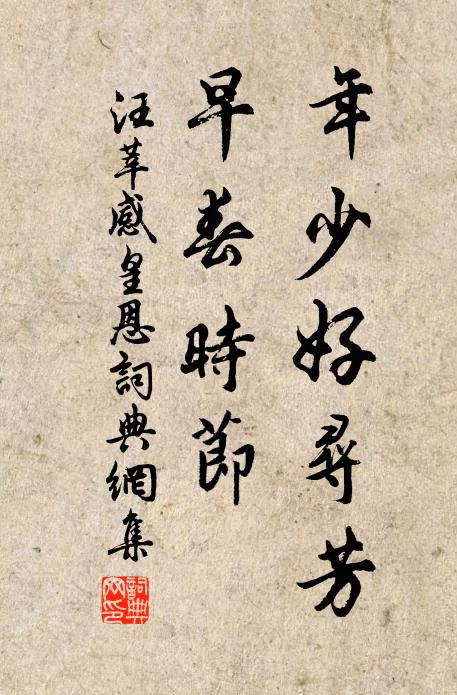 年少好尋芳
早春時節
汪莘感皇恩詞典網集
詞典網印